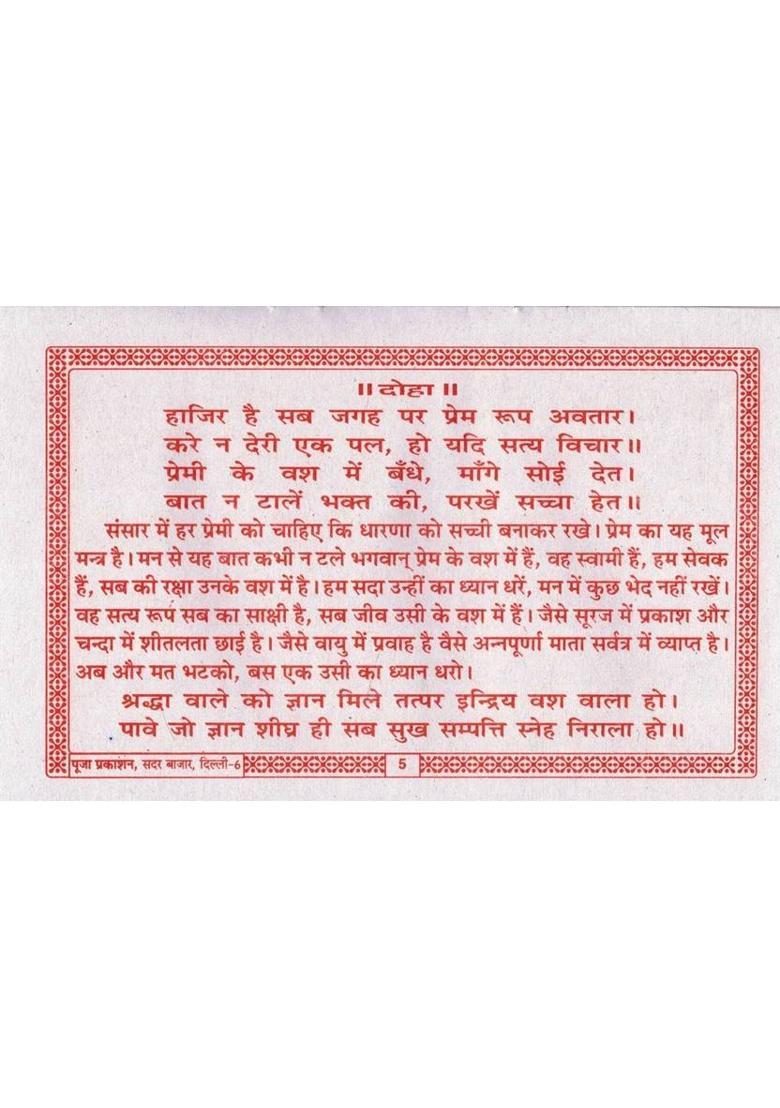 ॥ दोहा ॥
हाजिर है सब जगह पर प्रेम रूप अवतार।
करे न देरी एक पल, हो यदि सत्य विचार॥
प्रेमी के वश में बँधे, माँगे सोई देत।
बात न टालें भक्त की, परखें सच्चा हेत॥
संसार में हर प्रेमी को चाहिए कि धारणा को सच्ची बनाकर रखे। प्रेम का यह मूल
मन्त्र है। मन से यह बात कभी न टले भगवान् प्रेम के वश में हैं, वह स्वामी हैं, हम सेवक
हैं, सब की रक्षा उनके वश में है। हम सदा उन्हीं का ध्यान धरें, मन में कुछ भेद नहीं रखें।
वह सत्य रूप सब का साक्षी है, सब जीव उसी के वश में हैं। जैसे सूरज में प्रकाश और
चन्दा में शीतलता छाई है। जैसे वायु में प्रवाह है वैसे अन्नपूर्णा माता सर्वत्र में व्याप्त है।
अब और मत भटको, बस एक उसी का ध्यान धरो।
श्रद्धा वाले को ज्ञान मिले तत्पर इन्द्रिय वश वाला हो।
पावे जो ज्ञान शीघ्र ही सब सुख सम्पत्ति स्नेह निराला हो॥
पूजा प्रकाशन, सदर बाजार, दिल्ली-6 5